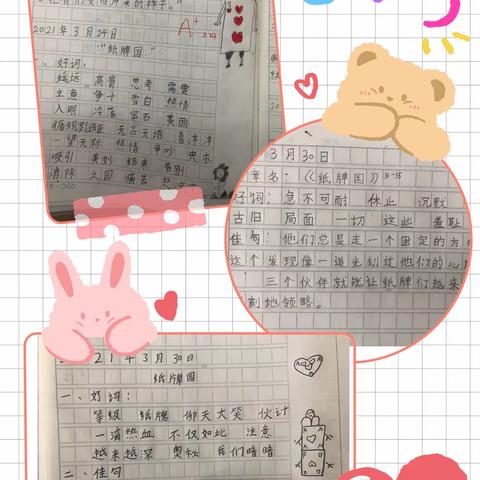 2021年3月24日
A+
3.24
"纸牌国"
一、好词:
遥远 高贵 思考 需要
主意 争十 雪白 热情
入眠 冷落 宝石 美丽
循规蹈矩 无言无语 喜洋洋
一望无际 热情 争吵 央求
吸引 美妙 结束 告别
消除 之国 痛苦
3月30日
章名:《纸牌国》31-35
好词:急不可耐 休止 沉默
古旧 局面 一切 这些 羞耻
佳句:他们总是走一个固定的方
这个发现像一道光刻过他们的心
三个伙伴就能让纸牌们越来
刻地领略。
21年3月30日
纸牌国
一、好词:
等级 纸牌 仰天大笑 伙计
一滴热血 不仅如此 注意
越来越深 奥秘 我们暗暗
二、佳句